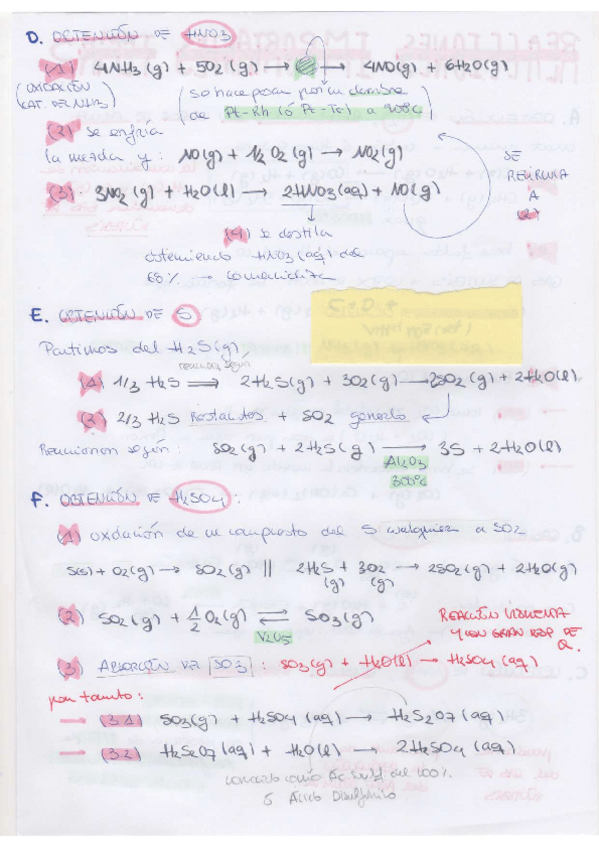 D. OBTENCIÓN DE HNO3
(1) 4NH3 (g) + 5O2 (g) → 4NO(g) + 6H2O(g)
(OXIDACIÓN CAT. DE NH3)
(se hace pasar por un alambre de Pt-Rh (ó Pt-Te) a 900ºC)
(2) se enfría
la mezcla y: NO(g) + 1/2 O2 (g) → NO2 (g)
(3) 3NO2 (g) + H2O(l) → 2HNO3 (aq) + NO(g)
SE
RECIRCULA
A
(2)
(4) se destila
obteniendo HNO3 (aq) del
68% → comercializa
E. OBTENCIÓN DE S
Partimos del H2S(g)
reacciona según
(1) 1/3 H2S ⇒ 2H2S(g) + 3O2 (g) → 2SO2 (g) + 2H2O(l)
(2) 2/3 H2S Restantes + SO2 generado
Reaccionan según: SO2 (g) + 2H2S (g) → 3S + 2H2O(l)
Al2O3
300ºC
F. OBTENCIÓN DE H2SO4:
(1) oxidación de un compuesto del S cualquiera a SO2
S(s) + O2 (g) → SO2 (g) || 2H2S (g) + 3O2 (g) → 2SO2 (g) + 2H2O(g)
(2) SO2 (g) + 1/2 O2 (g) ⇌ SO3 (g)
V2O5
REACCIÓN VIOLENTA
Y CON GRAN DESP DE
Q.
(3) ABSORCIÓN DE SO3: SO3 (g) + H2O(l) → H2SO4 (aq)
por tanto:
— (3.1) SO3 (g) + H2SO4 (aq) → H2S2O7 (aq)
— (3.2) H2S2O7 (aq) + H2O(l) → 2H2SO4 (aq)
conocido como Ác Sulf del 100%
ó Ácido Disulfúrico